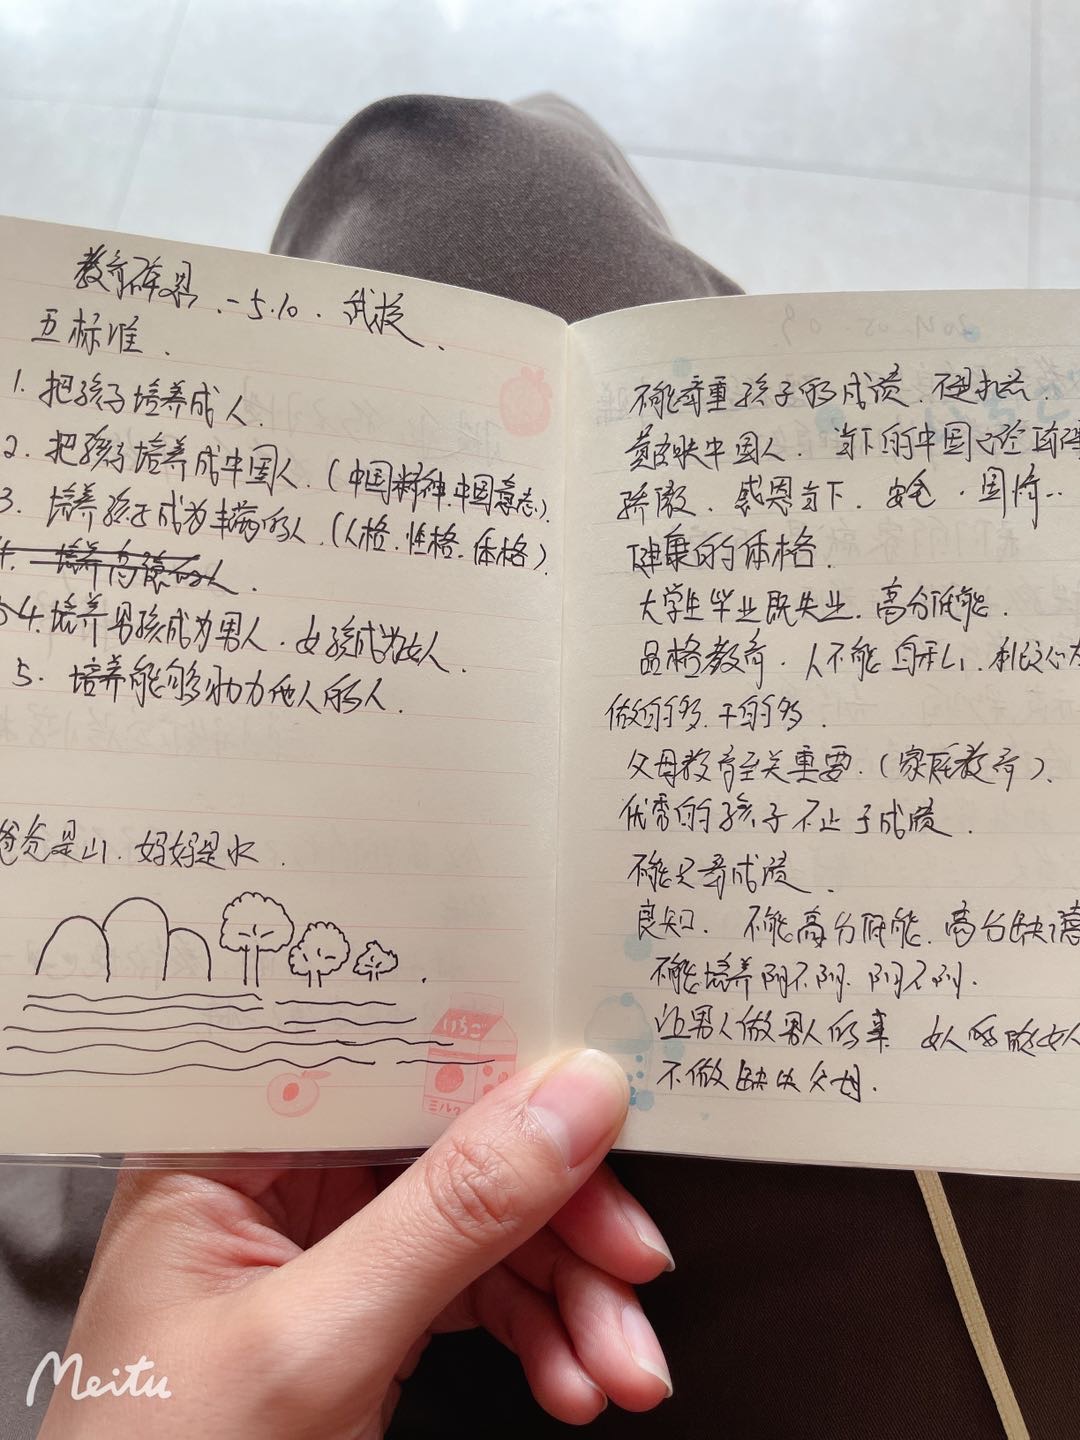 教育 .-5.10.
五标准.
1. 把孩子培养成人.
2. 把孩子培养成中国人.(中国精神.中国意志).
3. 培养孩子成为丰满的人.(人格.性格.体格).
4. 培养高 的人.
4.培养男孩成为男人.女孩成为女人.
5. 培养能够助力他人的人.
爸爸是山.妈妈是水.
いちご
ミルク
不能看重孩子的成绩.
中国人. 当下的中国
骄傲. 感恩当下.
健康的体格.
大学生毕业既失业.高分低能.
品格教育.人不能自私.
做的多.干的多.
父母教育至关重要.(家庭教育).
优秀的孩子不止于成绩.
不能只看成绩.
良知. 不能高分低能.高分缺德
不能培养阴不阴.阳不阳.
让男人做男人的事 女人
不做缺失父母.
Meitu